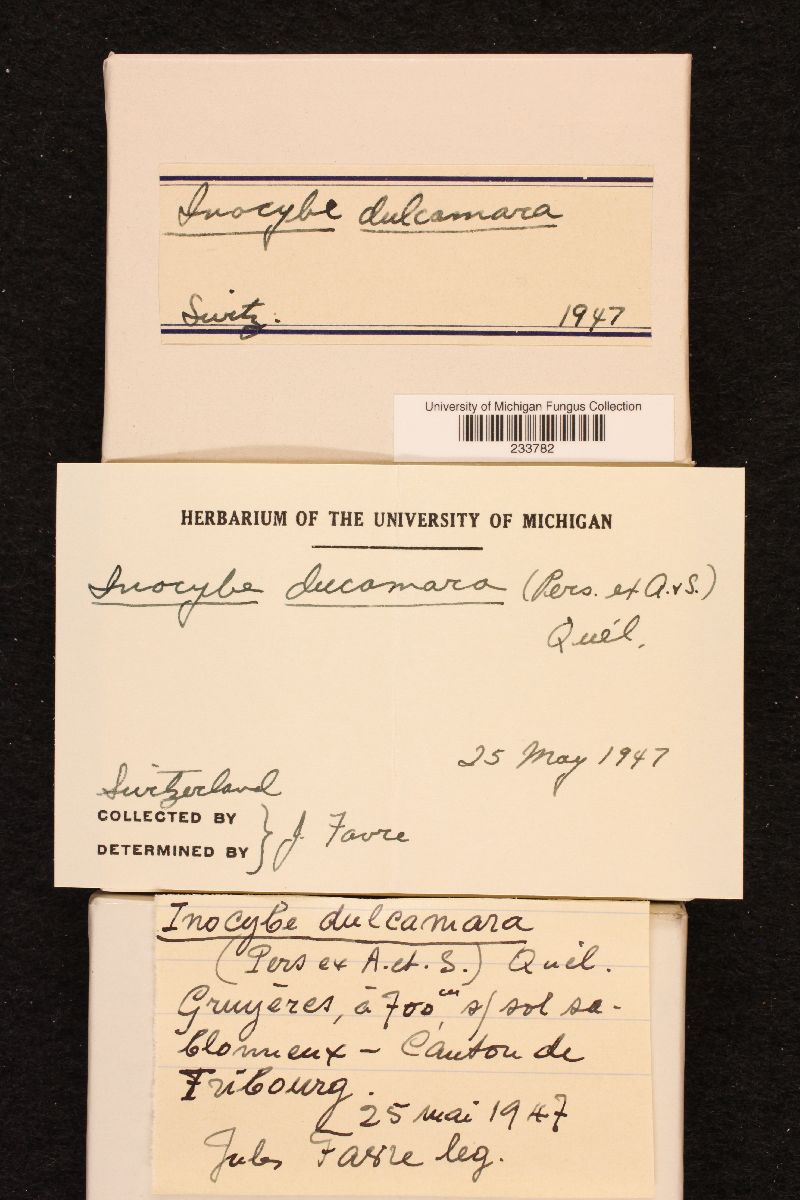 Inocybe dulcamara
Switz. 1947
University of Michigan Fungus Collection
233782
HERBARIUM OF THE UNIVERSITY OF MICHIGAN
Inocybe ducamara (Pers. ex A. & S.)
Quél.
25 May 1947
Switzerland
COLLECTED BY
DETERMINED BY } J. Favre
Inocybe dulcamara
(Pers ex A. et. S.) Quél.
Gruyères, à 700 m s/ sol sa-
blonneux - Canton de
Fribourg.
25 mai 1947
Jules Favre leg.